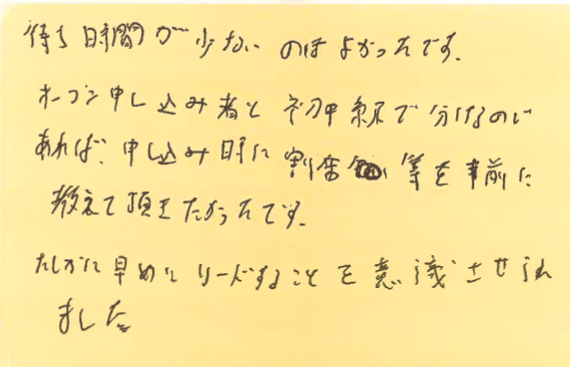 待ち時間が少ないのはよかったです。
オープン申し込み者と初中級で分けるので
あれば、申し込み時に割合等を事前に
教えて頂きたかったです。
たしかに早めにリードすることを意識させられ
ました